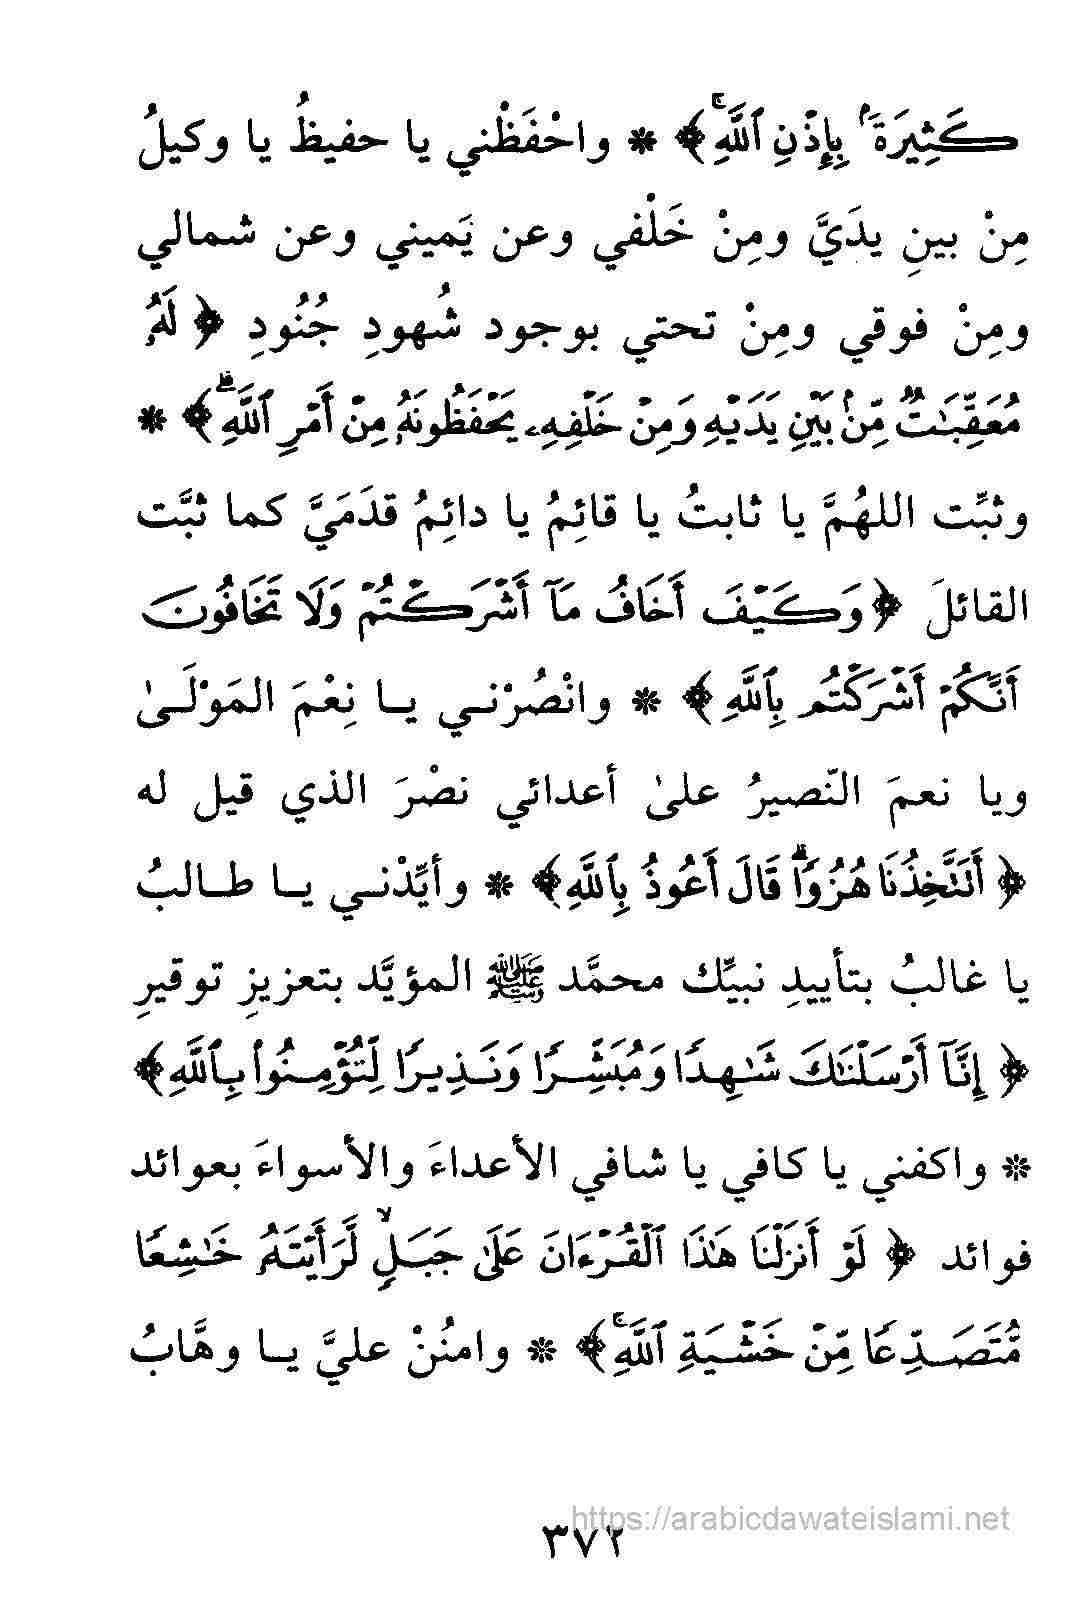 كَثِيرَةَۢ بِإِذۡنِ ٱللَّهِۚ﴾ * واحْفَظْني يا حفيظُ يا وكيلُ
مِنْ بينِ يدَيَّ ومِنْ خَلْفي وعن يَميني وعن شمالي
ومِنْ فوقي ومِنْ تحتي بوجود شُهودِ جُنُودِ ﴿لَهُۥ
مُعَقِّبَٰتٞ مِّنۢ بَيۡنِ يَدَيۡهِ وَمِنۡ خَلۡفِهِۦ يَحۡفَظُونَهُۥ مِنۡ أَمۡرِ ٱللَّهِۗ﴾ *
وثبِّت اللهُمَّ يا ثابتُ يا قائِمُ يا دائِمُ قدَمَيَّ كما ثبَّت
القائلَ ﴿وَكَيۡفَ أَخَافُ مَآ أَشۡرَكۡتُمۡ وَلَا تَخَافُونَ
أَنَّكُمۡ أَشۡرَكۡتُم بِٱللَّهِ﴾ * وانْصُرْنـي يـا نِعْمَ المَوْلَـىٰ
ويا نعمَ النّصيرُ علىٰ أعدائي نصْرَ الذي قيل له
﴿أَتَتَّخِذُنَا هُزُوٗاۖ قَالَ أَعُوذُ بِٱللَّهِ﴾ * وأيِّدْنـي يـا طـالبُ
يا غالبُ بتأييدِ نبيِّك محمَّد ﷺ المؤيَّد بتعزيزِ توقيرِ
﴿إِنَّآ أَرۡسَلۡنَٰكَ شَٰهِدٗا وَمُبَشِّرٗا وَنَذِيرٗا لِّتُؤۡمِنُواْ بِٱللَّهِ﴾
* واكفني يا كافي يا شافي الأعداءَ والأسواءَ بعوائد
فوائد ﴿لَوۡ أَنزَلۡنَا هَٰذَا ٱلۡقُرۡءَانَ عَلَىٰ جَبَلٖ لَّرَأَيۡتَهُۥ خَٰشِعٗا
مُّتَصَدِّعٗا مِّنۡ خَشۡيَةِ ٱللَّهِۚ﴾ * وامنُنْ عليَّ يـا وهَّابُ
https://arabicdawateislami.net
٣٧٢